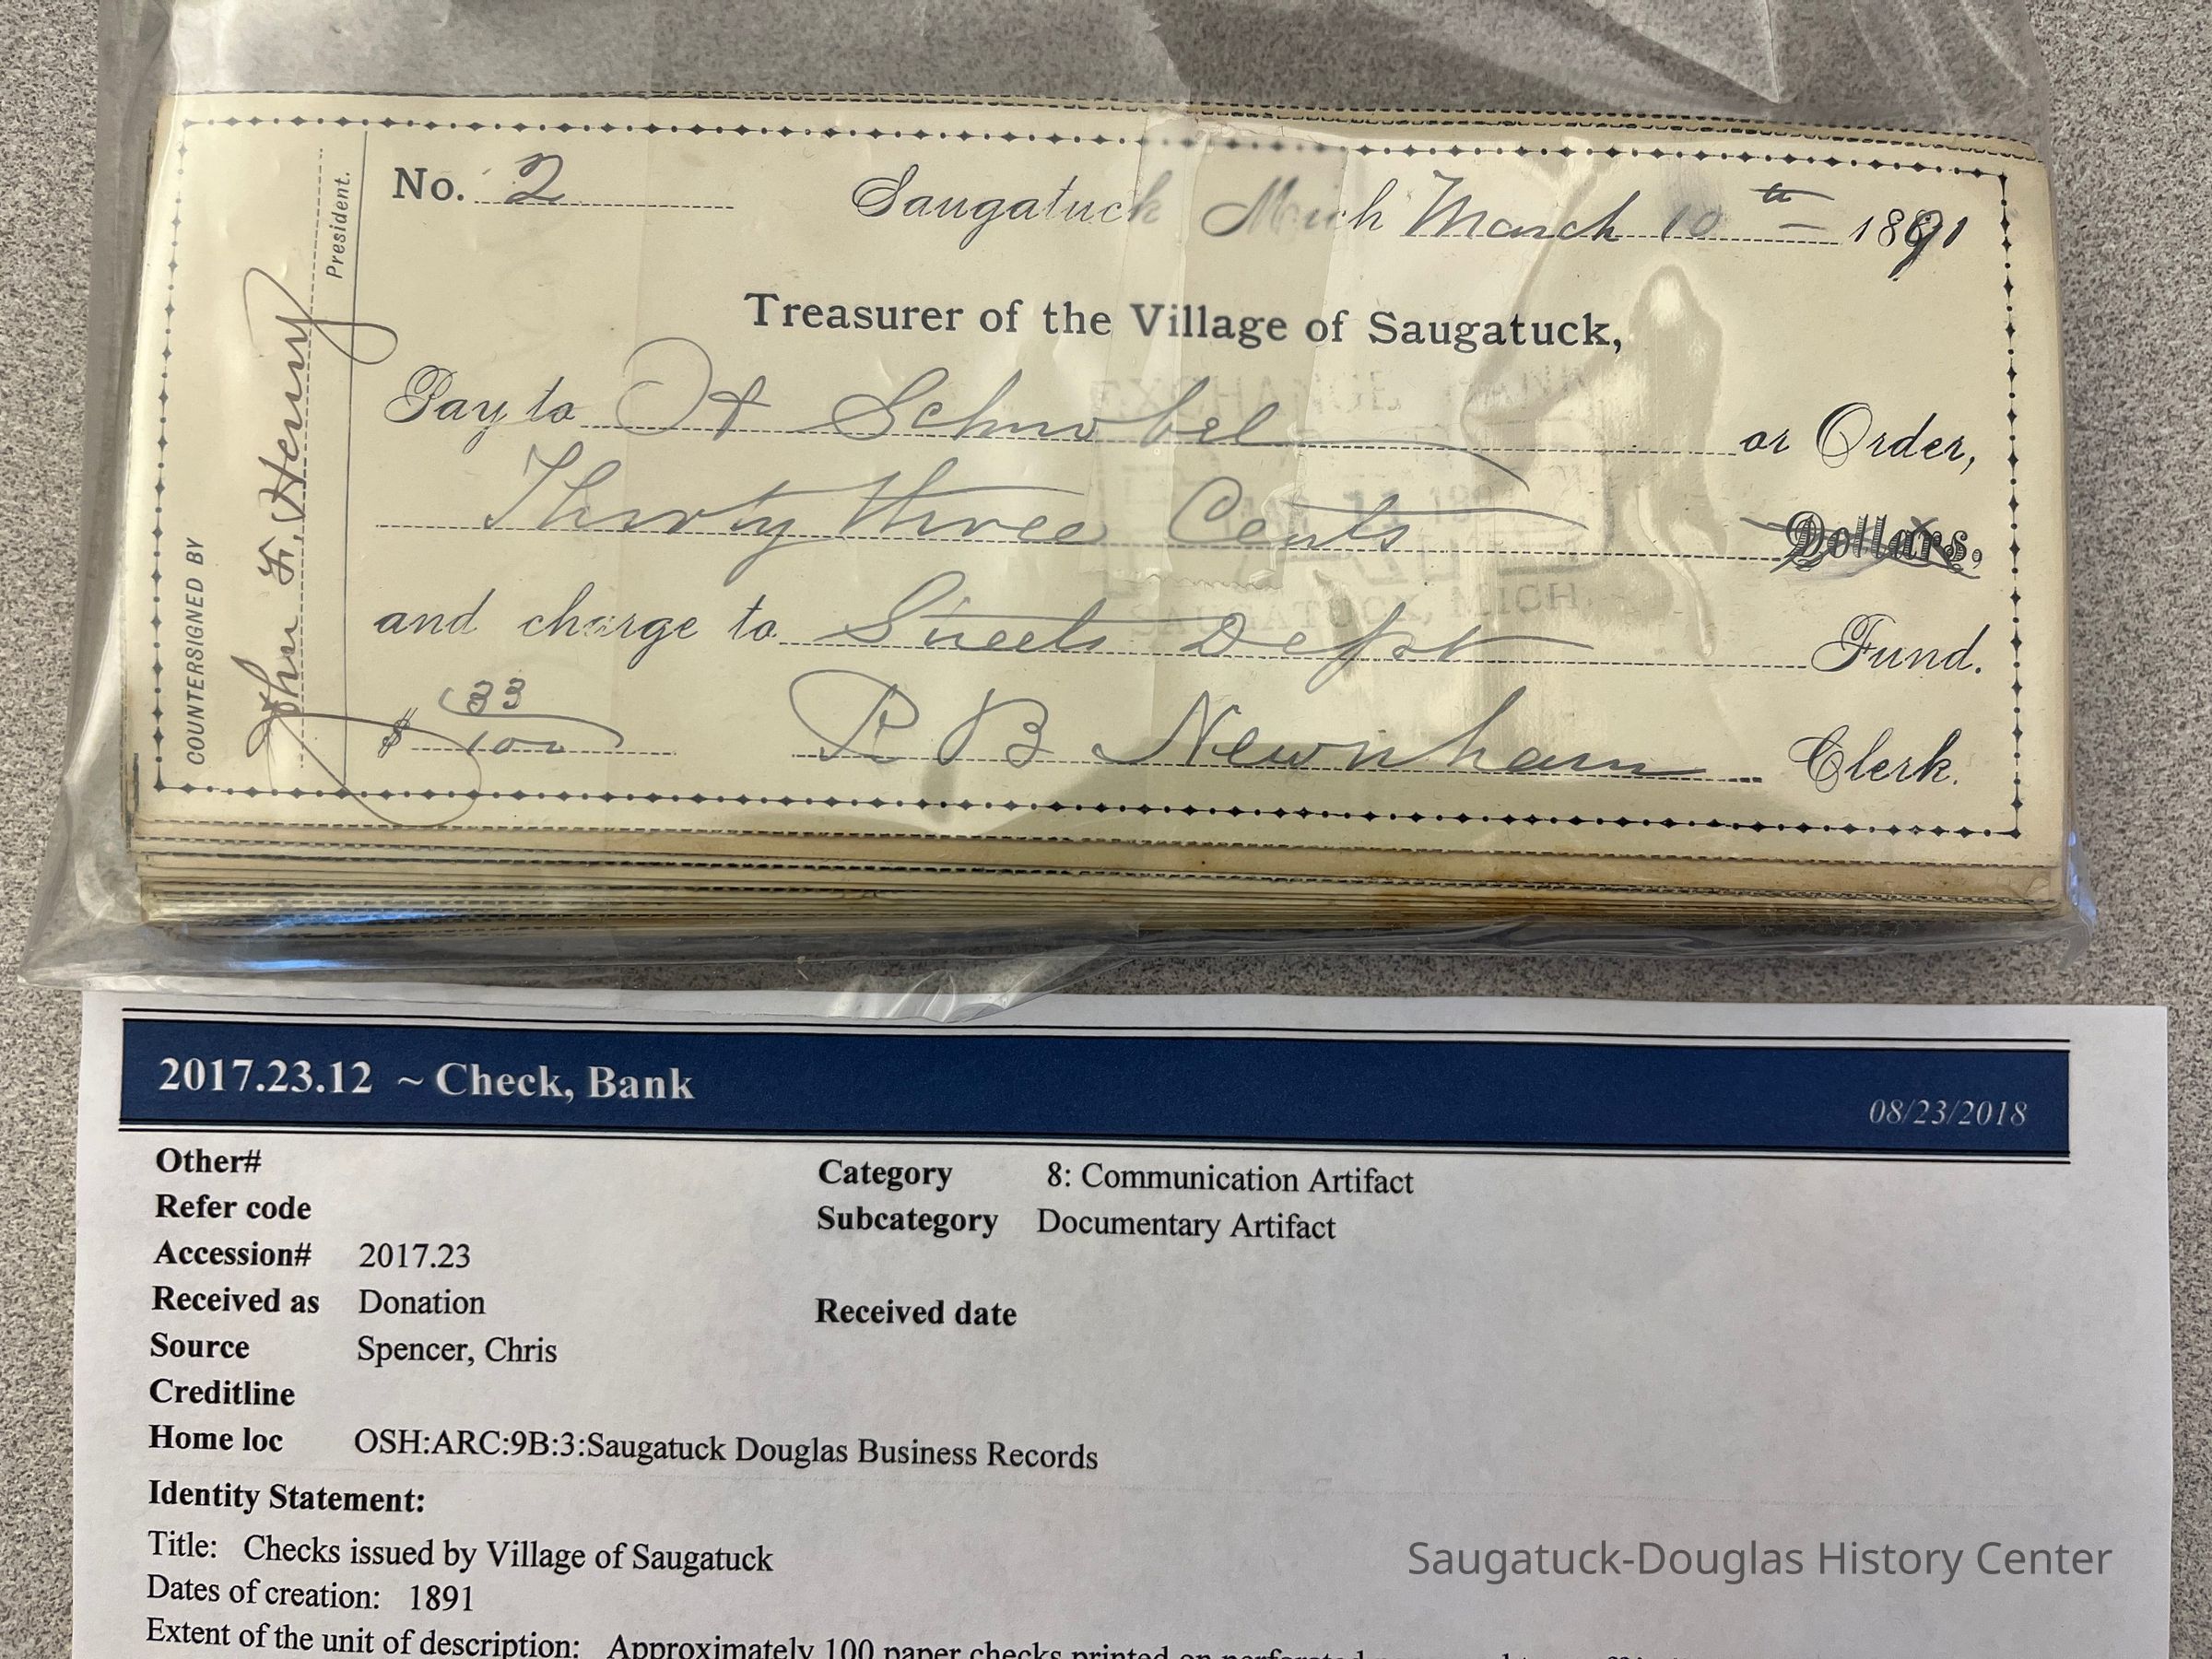 No. 2 Saugatuck Mich March 10th 1891
Treasurer of the Village of Saugatuck,
Pay to A Schnobel or Order,
Thirty three Cents Dollars.
and charge to Streets Dept Fund.
$ 33/100 R B Newnham Clerk.
COUNTERSIGNED BY
John F. Henry
President.
2017.23.12 ~ Check, Bank
08/23/2018
Other#
Refer code
Accession# 2017.23
Received as Donation
Source Spencer, Chris
Creditline
Home loc OSH:ARC:9B:3:Saugatuck Douglas Business Records
Category 8: Communication Artifact
Subcategory Documentary Artifact
Received date
Identity Statement:
Title: Checks issued by Village of Saugatuck
Dates of creation: 1891
Extent of the unit of description: Approximately 100 paper checks printed on perforated
Saugatuck-Douglas History Center